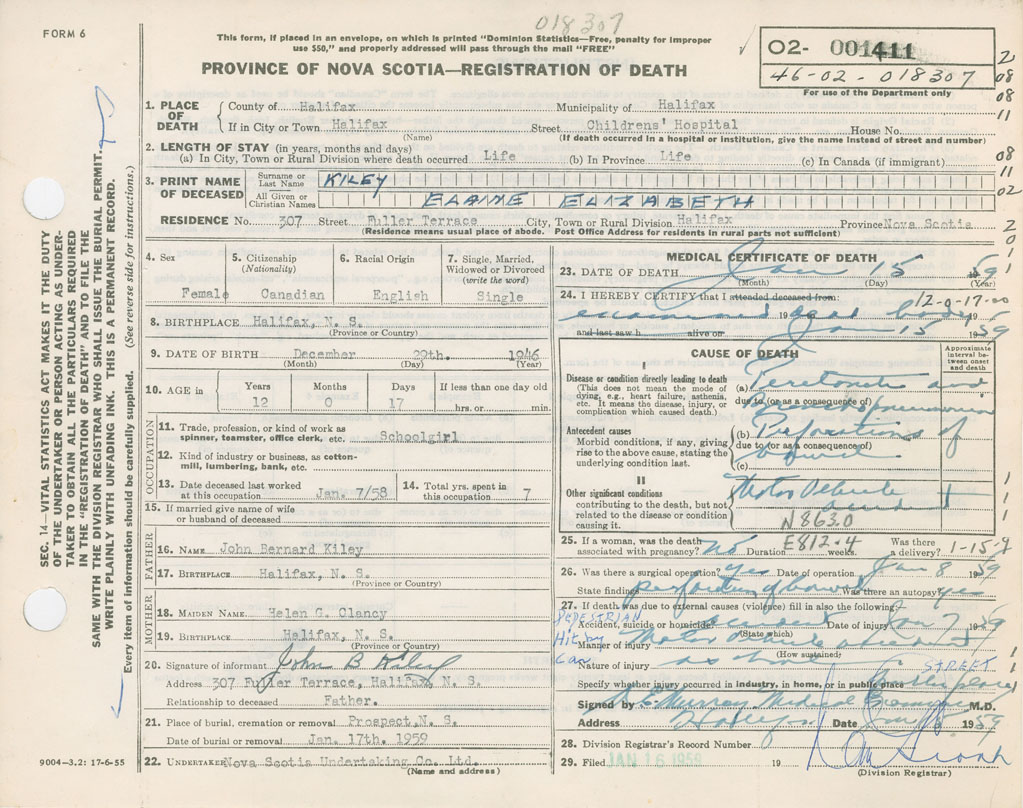 018307
FORM 6
This form, if placed in an envelope, on which is printed "Dominion Statistics—Free, penalty for improper
use $50," and properly addressed will pass through the mail "FREE"
PROVINCE OF NOVA SCOTIA—REGISTRATION OF DEATH
02- 001411
46-02-018307
For use of the Department only
2
08
08
11
08
11
02
2
0
1
1
SEC. 14—VITAL STATISTICS ACT MAKES IT THE DUTY
OF THE UNDERTAKER OR PERSON ACTING AS UNDER-
TAKER TO OBTAIN ALL THE PARTICULARS REQUIRED
IN THE "REGISTRATION OF DEATH" AND TO FILE THE
SAME WITH THE DIVISION REGISTRAR WHO SHALL ISSUE THE BURIAL PERMIT.
WRITE PLAINLY WITH UNFADING INK. THIS IS A PERMANENT RECORD.
Every item of information should be carefully supplied. (See reverse side for instructions.)
1. PLACE OF DEATH
County of Halifax Municipality of Halifax
If in City or Town Halifax Street Childrens' Hospital House No.
(Name) (If death occurred in a hospital or institution, give the name instead of street and number)
2. LENGTH OF STAY (in years, months and days)
(a) In City, Town or Rural Division where death occurred Life (b) In Province Life (c) In Canada (if immigrant)
3. PRINT NAME OF DECEASED
Surname or Last Name KILEY
All Given or Christian Names ELAINE ELIZABETH
RESIDENCE No. 307 Street Fuller Terrace City, Town or Rural Division Halifax Province Nova Scotia
(Residence means usual place of abode. Post Office Address for residents in rural parts not sufficient)
4. Sex 5. Citizenship (Nationality) 6. Racial Origin 7. Single, Married, Widowed or Divorced (write the word)
Female Canadian English Single
8. BIRTHPLACE Halifax, N. S.
(Province or Country)
9. DATE OF BIRTH December 29th. 1946
(Month) (Day) (Year)
10. AGE in Years Months Days If less than one day old
12 0 17 hrs. or min.
OCCUPATION
11. Trade, profession, or kind of work as
spinner, teamster, office clerk, etc. Schoolgirl
12. Kind of industry or business, as cotton-
mill, lumbering, bank, etc.
13. Date deceased last worked
at this occupation Jan. 7/58
14. Total yrs. spent in
this occupation 7
15. If married give name of wife
or husband of deceased
FATHER
16. NAME John Bernard Kiley
17. BIRTHPLACE Halifax, N. S.
(Province or Country)
MOTHER
18. MAIDEN NAME Helen G. Clancy
19. BIRTHPLACE Halifax, N. S.
(Province or Country)
20. Signature of informant John B Kiley
Address 307 Fuller Terrace, Halifax, N. S.
Relationship to deceased Father.
21. Place of burial, cremation or removal Prospect, N. S.
Date of burial or removal Jan. 17th. 1959
9004—3.2: 17-6-55
22. UNDERTAKER Nova Scotia Undertaking Co. Ltd.
(Name and address)
MEDICAL CERTIFICATE OF DEATH
23. DATE OF DEATH Jan 15 1959
(Month) (Day) (Year)
24. I HEREBY CERTIFY that I attended deceased from: 12-0-17-00
examined 19 dead body
and last saw h alive on Jan 15 1959
CAUSE OF DEATH
Approximate interval between onset and death
I
Disease or condition directly leading to death
(This does not mean the mode of
dying, e.g., heart failure, asthenia,
etc. It means the disease, injury, or
complication which caused death.)
(a) Peritonitis and
due to (or as a consequence of)
Bronchopneumonia
Antecedent causes
Morbid conditions, if any, giving
rise to the above cause, stating the
underlying condition last.
(b) Perforations of
due to (or as a consequence of)
bowel
(c)
II
Other significant conditions
contributing to the death, but not
related to the disease or condition
causing it.
Motor Vehicle
accident
N863.0
25. If a woman, was the death
associated with pregnancy? No Duration weeks. Was there a delivery?
E812.4 1-15-9
26. Was there a surgical operation? yes Date of operation Jan 8 1959
State findings perforation of bowel Was there an autopsy? yes
27. If death was due to external causes (violence) fill in also the following:
PEDESTRIAN
Accident, suicide or homicide? accident Date of injury Jan 7 1959
(State which)
Hit by
Manner of injury Motor vehicle accident
(How sustained)
Car
Nature of injury as above STREET
Specify whether injury occurred in industry, in home, or in public place Public place
Signed by E Murray Medical Examiner M.D.
Address Halifax Date Jan 1959
28. Division Registrar's Record Number
29. Filed JAN 16 1959 19
(Division Registrar)